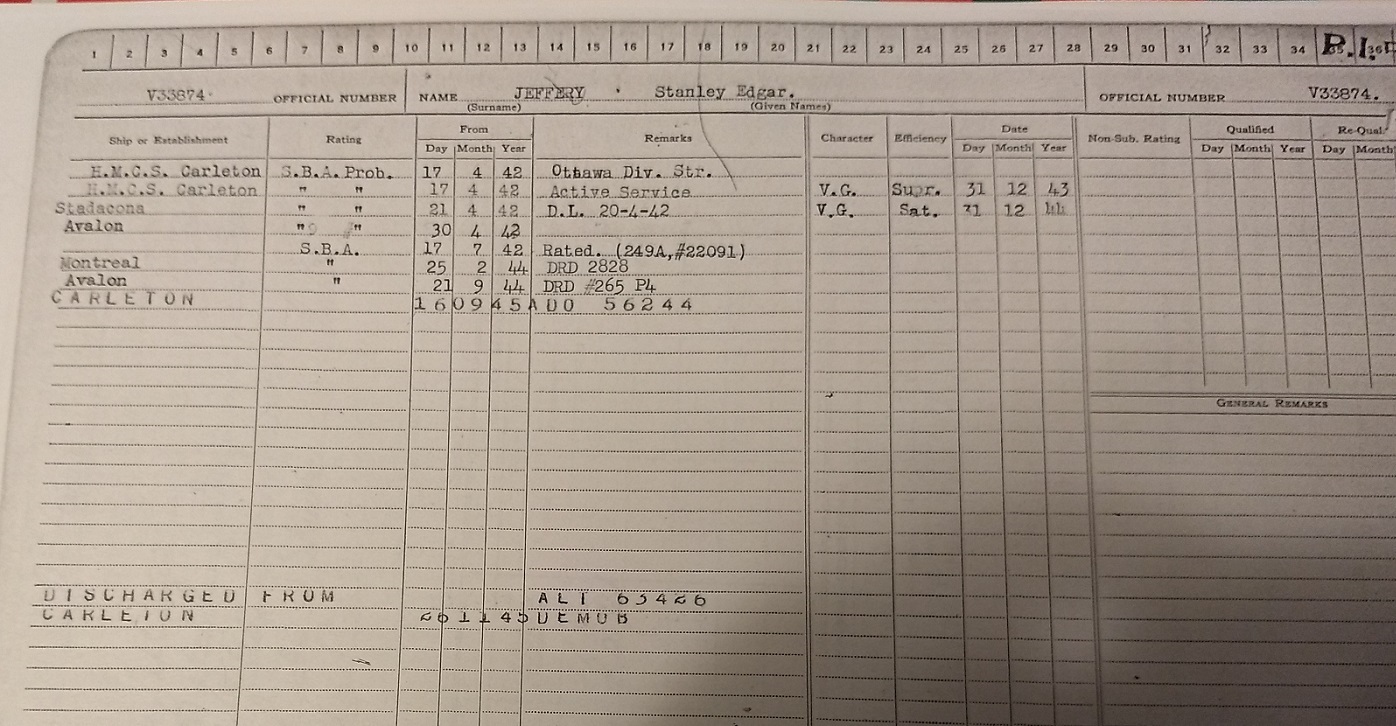 1 2 3 4 5 6 7 8 9 10 11 12 13 14 15 16 17 18 19 20 21 22 23 24 25 26 27 28 29 30 31 32 33 34 35 36
V33874 OFFICIAL NUMBER NAME JEFFERY Stanley Edgar. OFFICIAL NUMBER V33874.
(Surname) (Given Names)
Ship or Establishment Rating From Remarks Character Efficiency Date Non-Sub. Rating Qualified Re-Qual
Day Month Year Day Month Year Day Month Year Day Month
H.M.C.S. Carleton S.B.A. Prob. 17 4 42 Ottawa Div. Str.
H.M.C.S. Carleton " " 17 4 42 Active Service V.G. Supr. 31 12 43
Stadacona " " 21 4 42 D.L. 20-4-42 V.G. Sat. 31 12 44
Avalon " " 30 4 42
S.B.A. 17 7 42 Rated. (249A,#22091)
Montreal " 25 2 44 DRD 2828
Avalon " 21 9 44 DRD #265 P4
CARLETON 160945 ADO 56244
GENERAL REMARKS
DISCHARGED FROM
CARLETON 261145 DEMOB